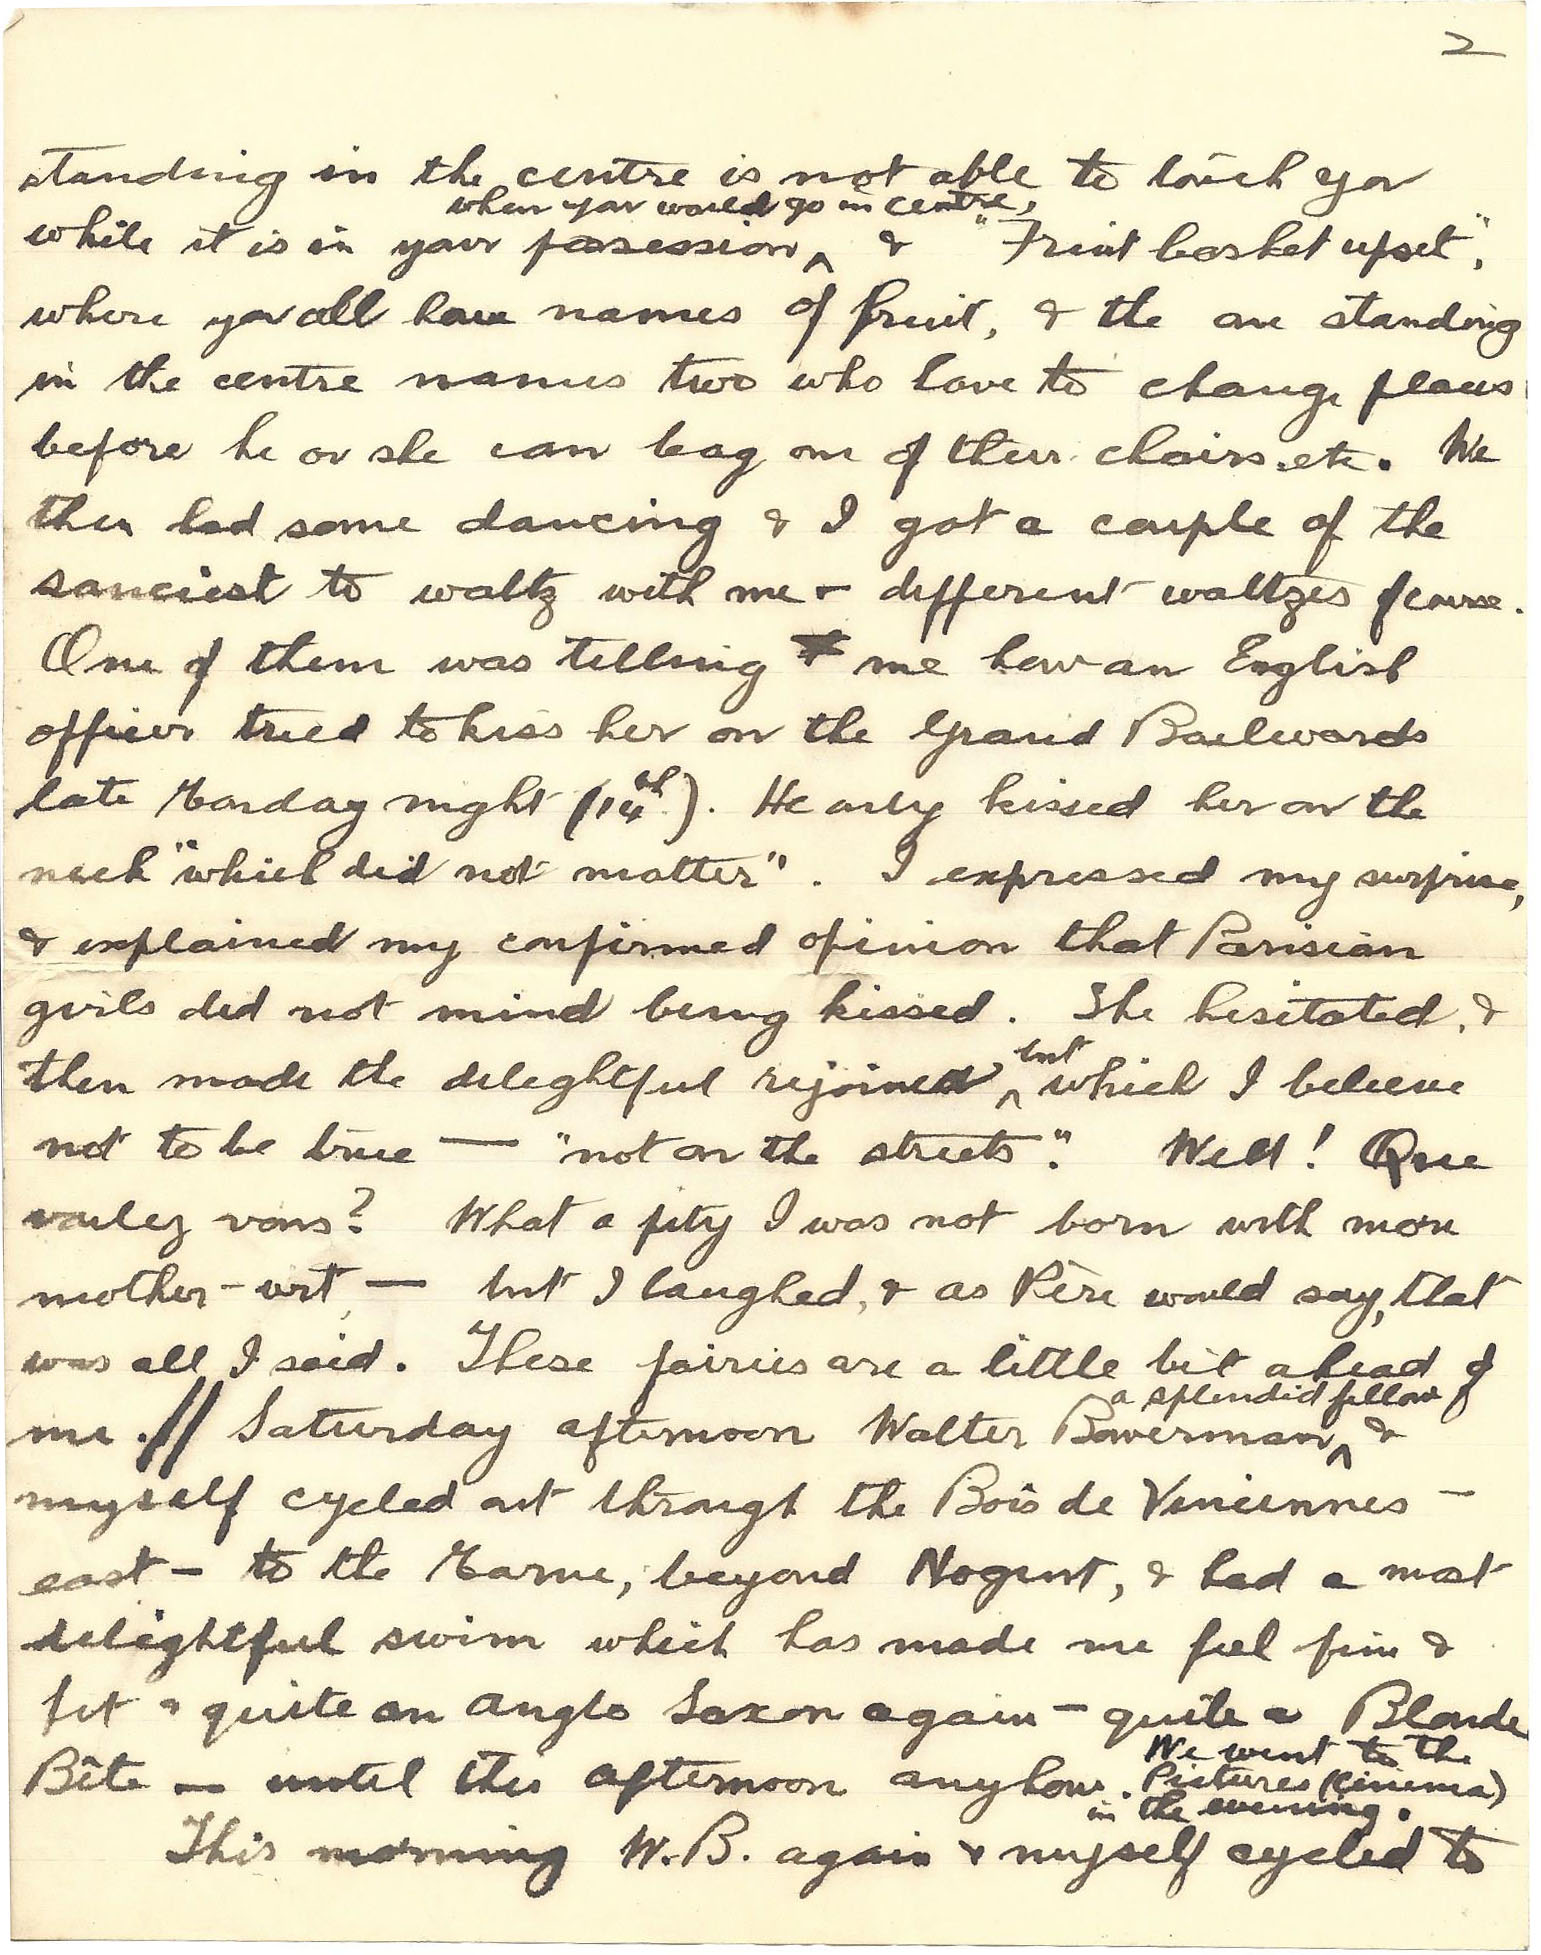 2
standing in the centre is not able to touch you
when you would go in centre,
while it is in your possession ^ & "Fruit basket upset",
where you all have names of fruit, & the one standing
in the centre names two who have to change places
before he or she can bag one of their chairs. etc. We
then had some dancing & I got a couple of the
sauciest to waltz with me - different waltzes of course.
One of them was telling me how an English
officer tried to kiss her on the Grand Boulevards
late Monday night (14th). He only kissed her on the
neck "which did not matter". I expressed my surprise,
& explained my confirmed opinion that Parisian
girls did not mind being kissed. She hesitated, &
but
then made the delightful rejoined ^ which I believe
not to be true — "not on the streets". Well! Que
voulez vous? What a pity I was not born with more
mother-wit, — but I laughed, & as Père would say, that
was all I said. These fairies are a little bit ahead of
a splendid fellow
me. // Saturday afternoon Walter Bowerman ^ &
myself cycled out through the Bois de Vincennes -
east - to the Marne, beyond Nogent, & had a most
delightful swim which has made me feel fine &
fit & quite an Anglo Saxon again - quite a Blonde
We went to the
Bête — until this afternoon anyhow. Pictures (cinema)
in the evening.
This morning W.B. again & myself cycled to